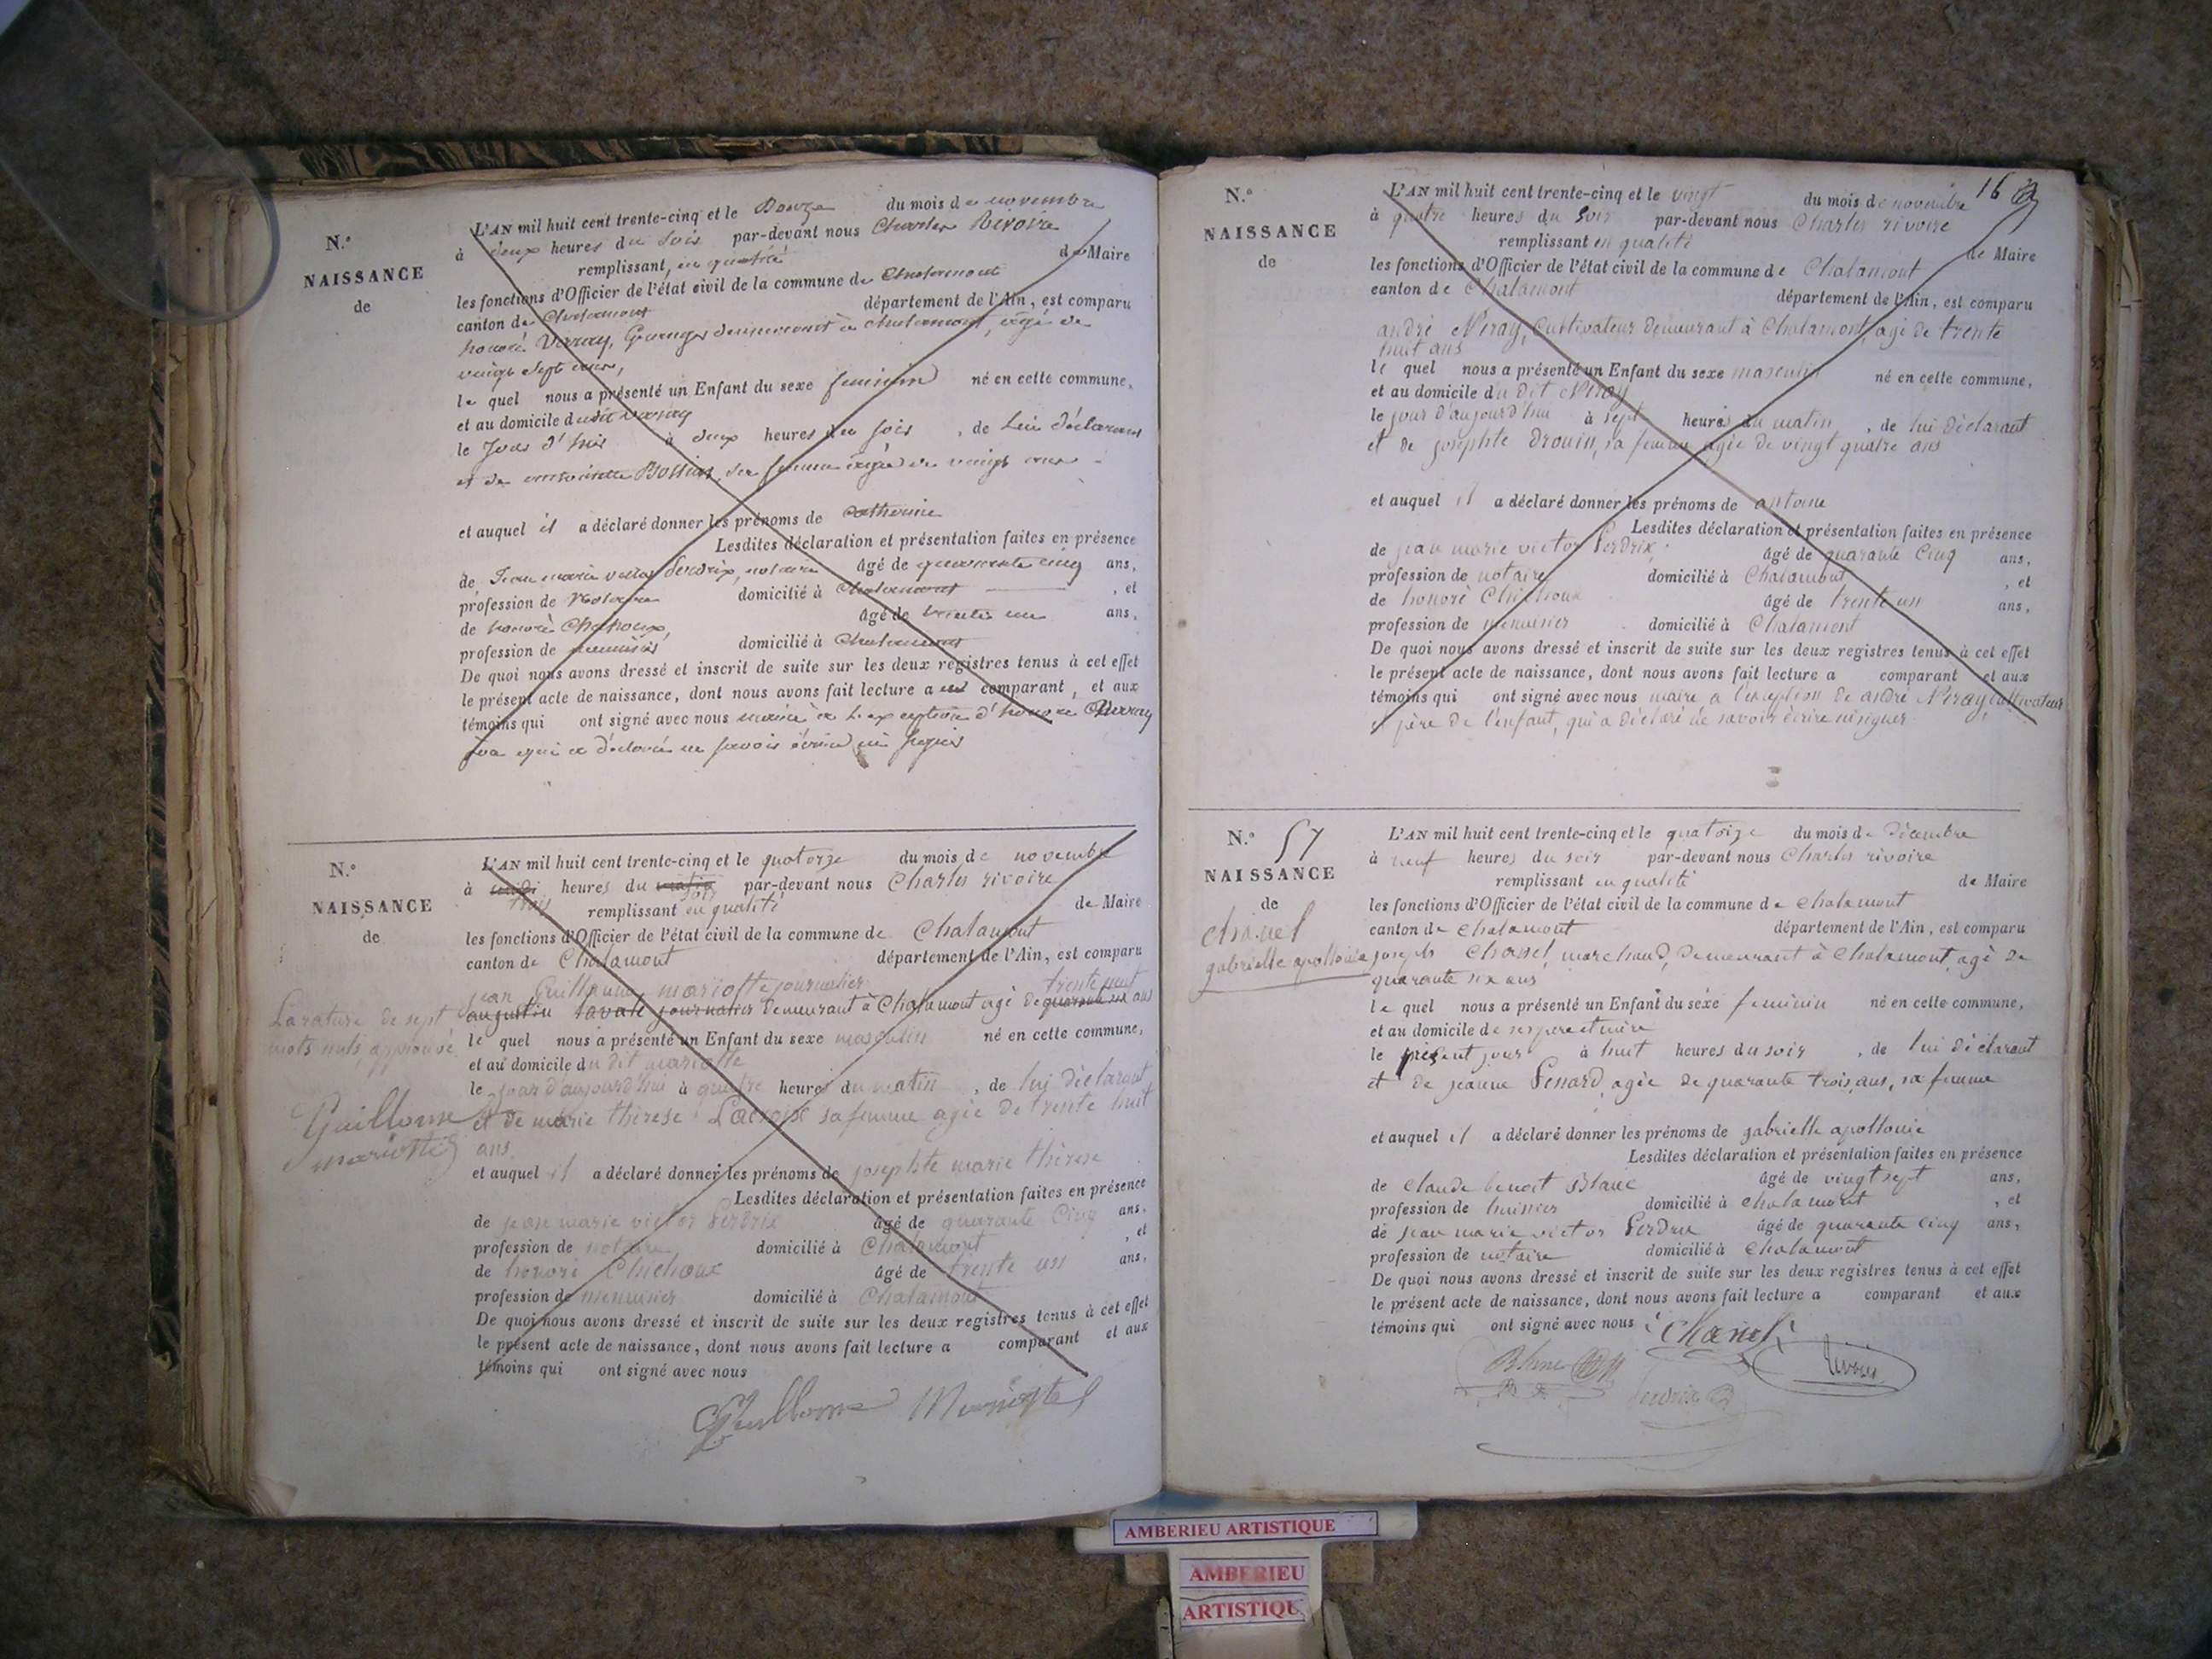 N.º
NAISSANCE
de
L'AN mil huit cent trente-cinq et le Douze du mois de novembre
à deux heures du soir par-devant nous Charles Rivoire
remplissant, en qualité de Maire
les fonctions d'Officier de l'état civil de la commune de Chalamont
canton de Chalamont département de l'Ain, est comparu
honoré Verray, demeurant à chalamont, âgé de
vingt sept ans,
le quel nous a présenté un Enfant du sexe feminin né en cette commune,
et au domicile dudit verray
le Jour d'hui à deux heures du soir, de Lui déclarant
et de antoinette sa femme âgée de vingt ans
et auquel il a déclaré donner les prénoms de Catherine
Lesdites déclaration et présentation faites en présence
de Jean marie victor Perdrix, notaire âgé de quarante cinq ans,
profession de Notaire domicilié à Chalamont, et
de honoré Chichoux, âgé de trente un ans,
profession de menuisier domicilié à Chalamont
De quoi nous avons dressé et inscrit de suite sur les deux registres tenus à cet effet
le présent acte de naissance, dont nous avons fait lecture a comparant, et aux
témoins qui ont signé avec nous maire à l'exception d'honoré Verray
qui a déclaré ne savoir écrire ni signer
N.º
NAISSANCE
de
L'AN mil huit cent trente-cinq et le quatorze du mois de novembre
à midi heures du matin par-devant nous Charles rivoire
trois soir
remplissant en qualité de Maire
les fonctions d'Officier de l'état civil de la commune de Chalamont
canton de Chalamont département de l'Ain, est comparu
jean Guillaume mariotte journalier trente huit
augustin lavale journalier demeurant à Chalamont agé de quarante six ans
le quel nous a présenté un Enfant du sexe masculin né en cette commune,
et au domicile du dit mariotte
le jour d'aujourd'hui à quatre heures du matin, de lui déclarant
et de marie thérese Lacroix sa femme agée de trente huit
ans.
et auquel il a déclaré donner les prénoms de josephte marie thérese
Lesdites déclaration et présentation faites en présence
de jean marie victor Perdrix âgé de quarante Cinq ans,
profession de notaire domicilié à Chalamont, et
de honoré Chichoux âgé de trente un ans,
profession de menuisier domicilié à Chalamont
De quoi nous avons dressé et inscrit de suite sur les deux registres tenus à cet effet
le présent acte de naissance, dont nous avons fait lecture a comparant et aux
témoins qui ont signé avec nous
La rature de sept
mots nuls approuvé
Guillome
mariotte
Guillome Mariotte
16
N.º
NAISSANCE
de
L'AN mil huit cent trente-cinq et le vingt du mois de novembre
à quatre heures du soir par-devant nous Charles rivoire
remplissant en qualité de Maire
les fonctions d'Officier de l'état civil de la commune de Chalamont
canton de Chalamont département de l'Ain, est comparu
andré Niray, Cultivateur demeurant à Chalamont, agé de trente
huit ans
le quel nous a présenté un Enfant du sexe masculin né en cette commune,
et au domicile du dit Niray
le jour d'aujourd'hui à sept heures du matin, de lui déclarant
et de josephte Drouin, sa femme agée de vingt quatre ans
et auquel il a déclaré donner les prénoms de antoine
Lesdites déclaration et présentation faites en présence
de jean marie victor Perdrix, âgé de quarante Cinq ans,
profession de notaire domicilié à Chalamont, et
de honoré Chichoux âgé de trente un ans,
profession de menuisier domicilié à Chalamont
De quoi nous avons dressé et inscrit de suite sur les deux registres tenus à cet effet
le présent acte de naissance, dont nous avons fait lecture a comparant et aux
témoins qui ont signé avec nous maire a l'exception de andré Niray cultivateur
et père de l'enfant, qui a déclaré ne savoir écrire ni signer
N.º 57
NAISSANCE
de
chanel
gabrielle apollonie
L'AN mil huit cent trente-cinq et le quatorze du mois de Décembre
à neuf heures du soir par-devant nous Charles rivoire
remplissant en qualité de Maire
les fonctions d'Officier de l'état civil de la commune de chalamont
canton de chalamont département de l'Ain, est comparu
joseph Chanel, marchand, demeurant à Chalamont, agé de
quarante six ans
le quel nous a présenté un Enfant du sexe feminin né en cette commune,
et au domicile de ses père et mère
le présent jour à huit heures du soir, de lui déclarant
et de jeanne Penard, agée de quarante trois ans, sa femme
et auquel il a déclaré donner les prénoms de gabrielle apollonie
Lesdites déclaration et présentation faites en présence
de claude benoit Blanc âgé de vingt sept ans,
profession de huissier domicilié à chalamont, et
de jean marie victor Perdrix âgé de quarante cinq ans,
profession de notaire domicilié à Chalamont
De quoi nous avons dressé et inscrit de suite sur les deux registres tenus à cet effet
le présent acte de naissance, dont nous avons fait lecture a comparant et aux
témoins qui ont signé avec nous Chanel
Blanc Rivoire
Perdrix
AMBERIEU ARTISTIQUE
AMBERIEU
ARTISTIQUE